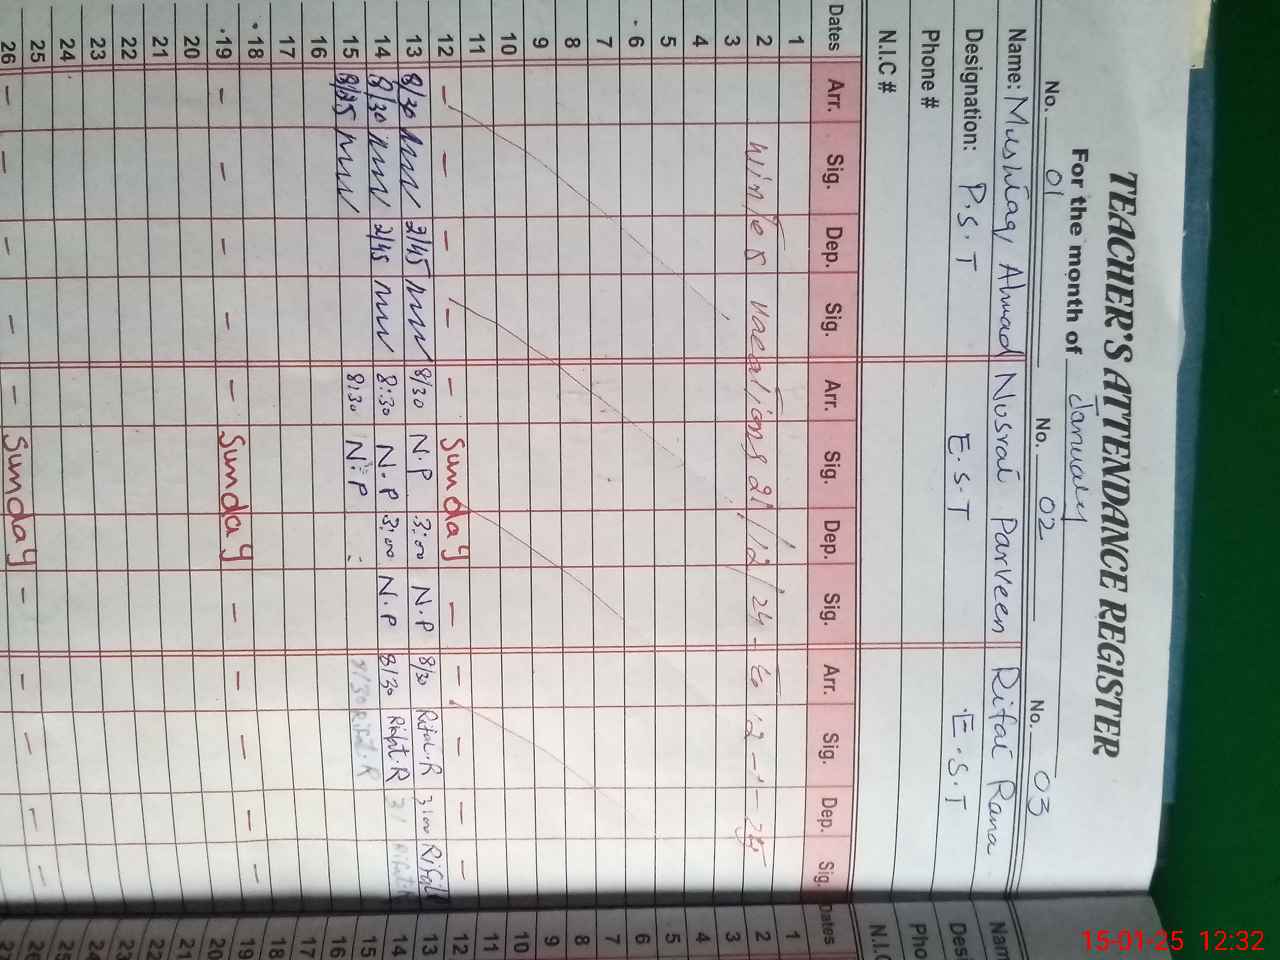 TEACHER'S ATTENDANCE REGISTER
For the month of January
No. 01 No. 02 No. 03
Name: Mushtaq Ahmad Nusrat Parveen Rifat Rana
Designation: P.S.T E.S.T E.S.T
Phone #
N.I.C #
Dates Arr. Sig. Dep. Sig. Arr. Sig. Dep. Sig. Arr. Sig. Dep. Sig.
1
2 Winter vacations 21/12/24 - to 12-1-25
3
4
5
6
7
8
9
10
11
12 - - - - - Sunday - - - - -
13 8/30 2/45 8/30 N.P 3:00 N.P 8/30 Rifat.R 3/00 Rifat
14 8/30 2/45 8:30 N.P 3:00 N.P 8/30 Rifat.R 3/ Rifat.R
15 8/25 8:30 N.P : 8/30 Rifat.R
16
17
18
19 - - - - - Sunday - - - - -
20
21
22
23
24
25
26 - - - - - Sunday - - - - -
Nam
Desi
Pho
N.I.C
Dates
1
2
3
4
5
6
7
8
9
10
11
12
13
14
15
16
17
18
19
20
21
22
23
24
25
26
27
15-01-25 12:32